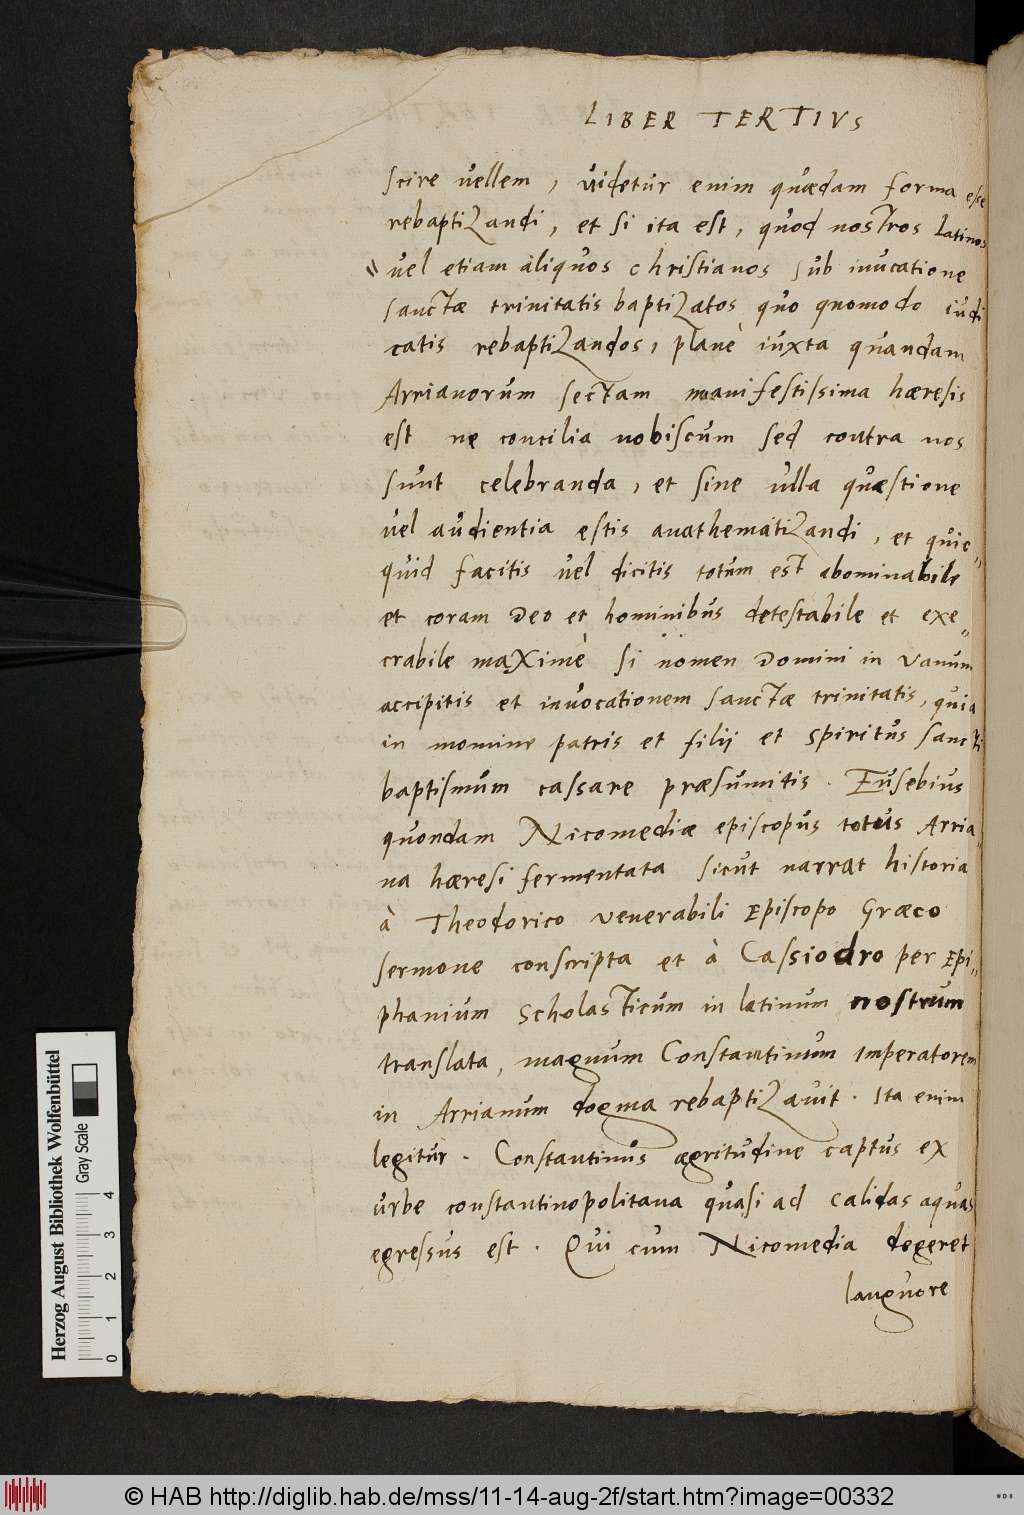 LIBER TERTIVS
scire vellem, videtur enim quædam forma esse
rebaptizandi, et si ita est, quod nostros latinos
vel etiam aliquos christianos sub inucatione
sanctæ trinitatis baptizatos quo quomodo iudi
catis rebaptizandos, planè iuxta quandam
Arrianorum sectam manifestissima hæresis
est ne concilia nobiscum sed contra nos
sunt celebranda, et sine ulla quæstione
vel audientia estis anathematizandi, et quic„
quid facitis vel dicitis totum est abominabile
et coram Deo et hominibus detestabile et exe„
crabile maximè si nomen Domini in vanum
accipitis et invocationem sanctæ trinitatis, quia
in momine patris et filij et spiritus sancti
baptismum cassare præsumitis. Eusebius
quondam Nicomediæ episcopus totus Arria„
na hæresi fermentata sicut narrat historia
à Theodorico venerabili Episcopo Græco
sermone conscripta et à Cassiodro per Epi„
phanium Scholasticum in latinum nostrum
translata, magnum Constantinum Imperatorem
in Arrianum dogma rebaptizavit. Ita enim
legitur. Constantinus ægritudine captus ex
urbe constantinopolitana quasi ad calidas aquas
egressus est. Qui cum Nicomedia degeret
languore
Herzog August Bibliothek Wolfenbüttel
Gray Scale
0 1 2 3 4
© HAB http://diglib.hab.de/mss/11-14-aug-2f/start.htm?image=00332